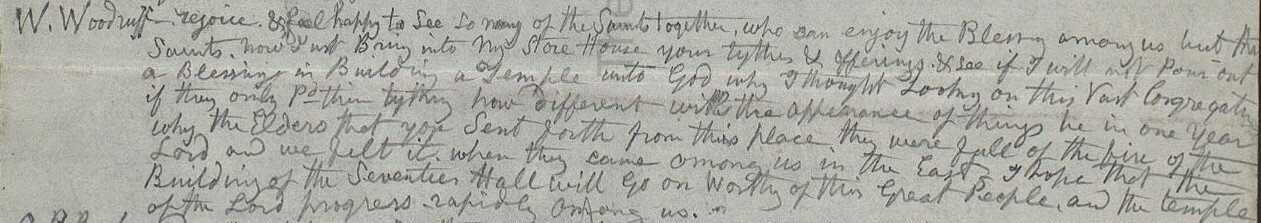 W. Woodruff - rejoice. & feel happy to see so many of the Saints together, who can enjoy the Blessing among us but the
Saints. now Just Bring into My Store House your tythes & offerings. & see if I will not pour out
a Blessing in Building a Temple unto God why I thought Looking on this Vast Congregation
if they only Pd their tything how different will the appearance of things be in one Year
why the Elders that you Sent forth from this place they were full of the fire of the
Lord and we felt it. when they came among us in the East - I hope that the
Building of the Seventies Hall will Go on Worthy of this Great People, and the temple
of the Lord progress rapidly among us. -